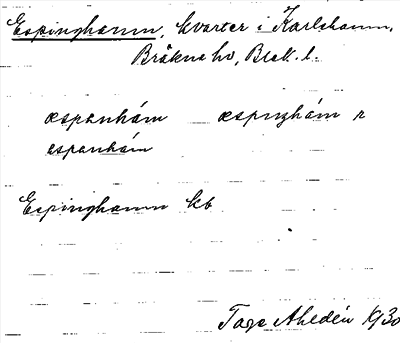 Espinghamn, kvarter i Karlshamn,
Bräkne hd, Blek. l.
espanhám espinhám r
espanhám
Espinghamn kb
Tage Ahldén 1930